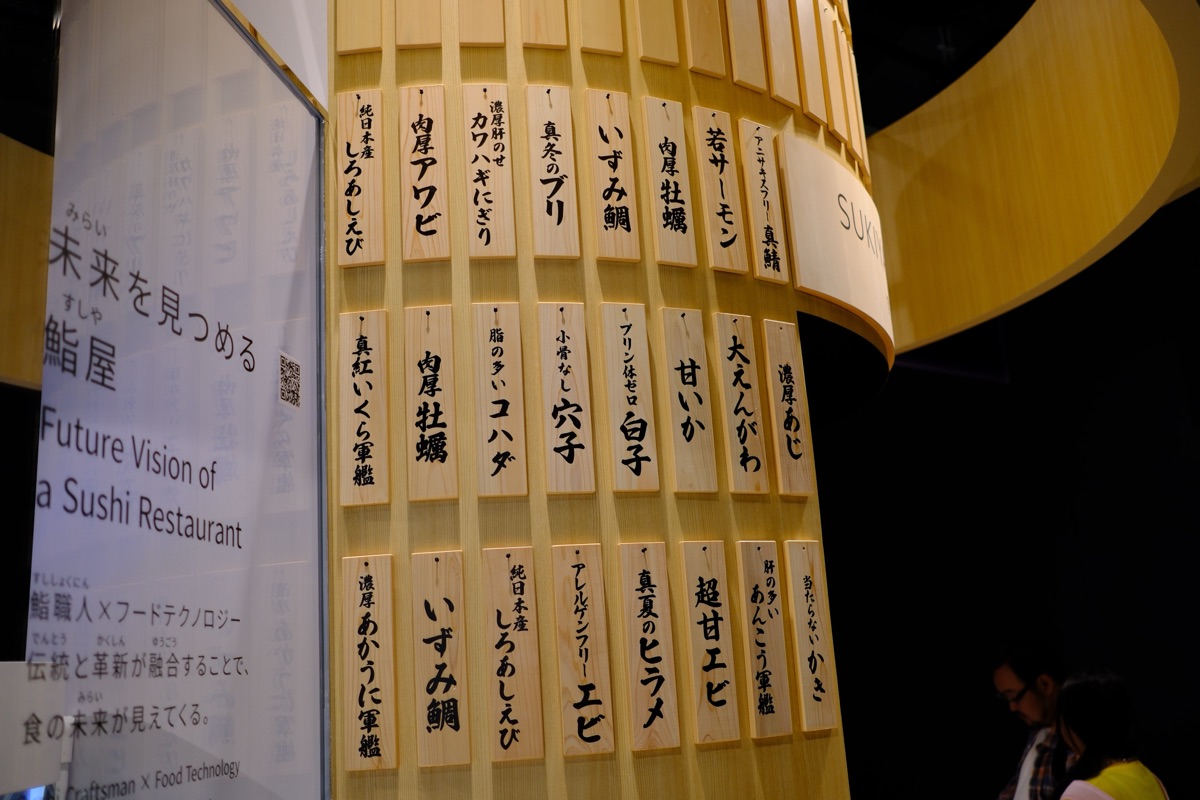 みらい
未来を見つめる
すしや
鮨屋
Future Vision of
a Sushi Restaurant
すししょくにん
鮨職人×フードテクノロジー
でんとう かくしん ゆうごう
伝統と革新が融合することで、
みらい
食の未来が見えてくる。
Craftsman × Food Technology
純日本産
しろあしえび
肉厚アワビ
濃厚肝のせ
カワハギにぎり
真冬のブリ
いずみ鯛
肉厚牡蠣
若サーモン
アニサキスフリー真鯖
真紅いくら軍艦
肉厚牡蠣
脂の多いコハダ
小骨なし穴子
プリン体ゼロ白子
甘いか
大えんがわ
濃厚あじ
濃厚あかうに軍艦
いずみ鯛
純日本産
しろあしえび
アレルゲンフリーエビ
真夏のヒラメ
超甘エビ
肝の多い
あんこう軍艦
当たらないかき